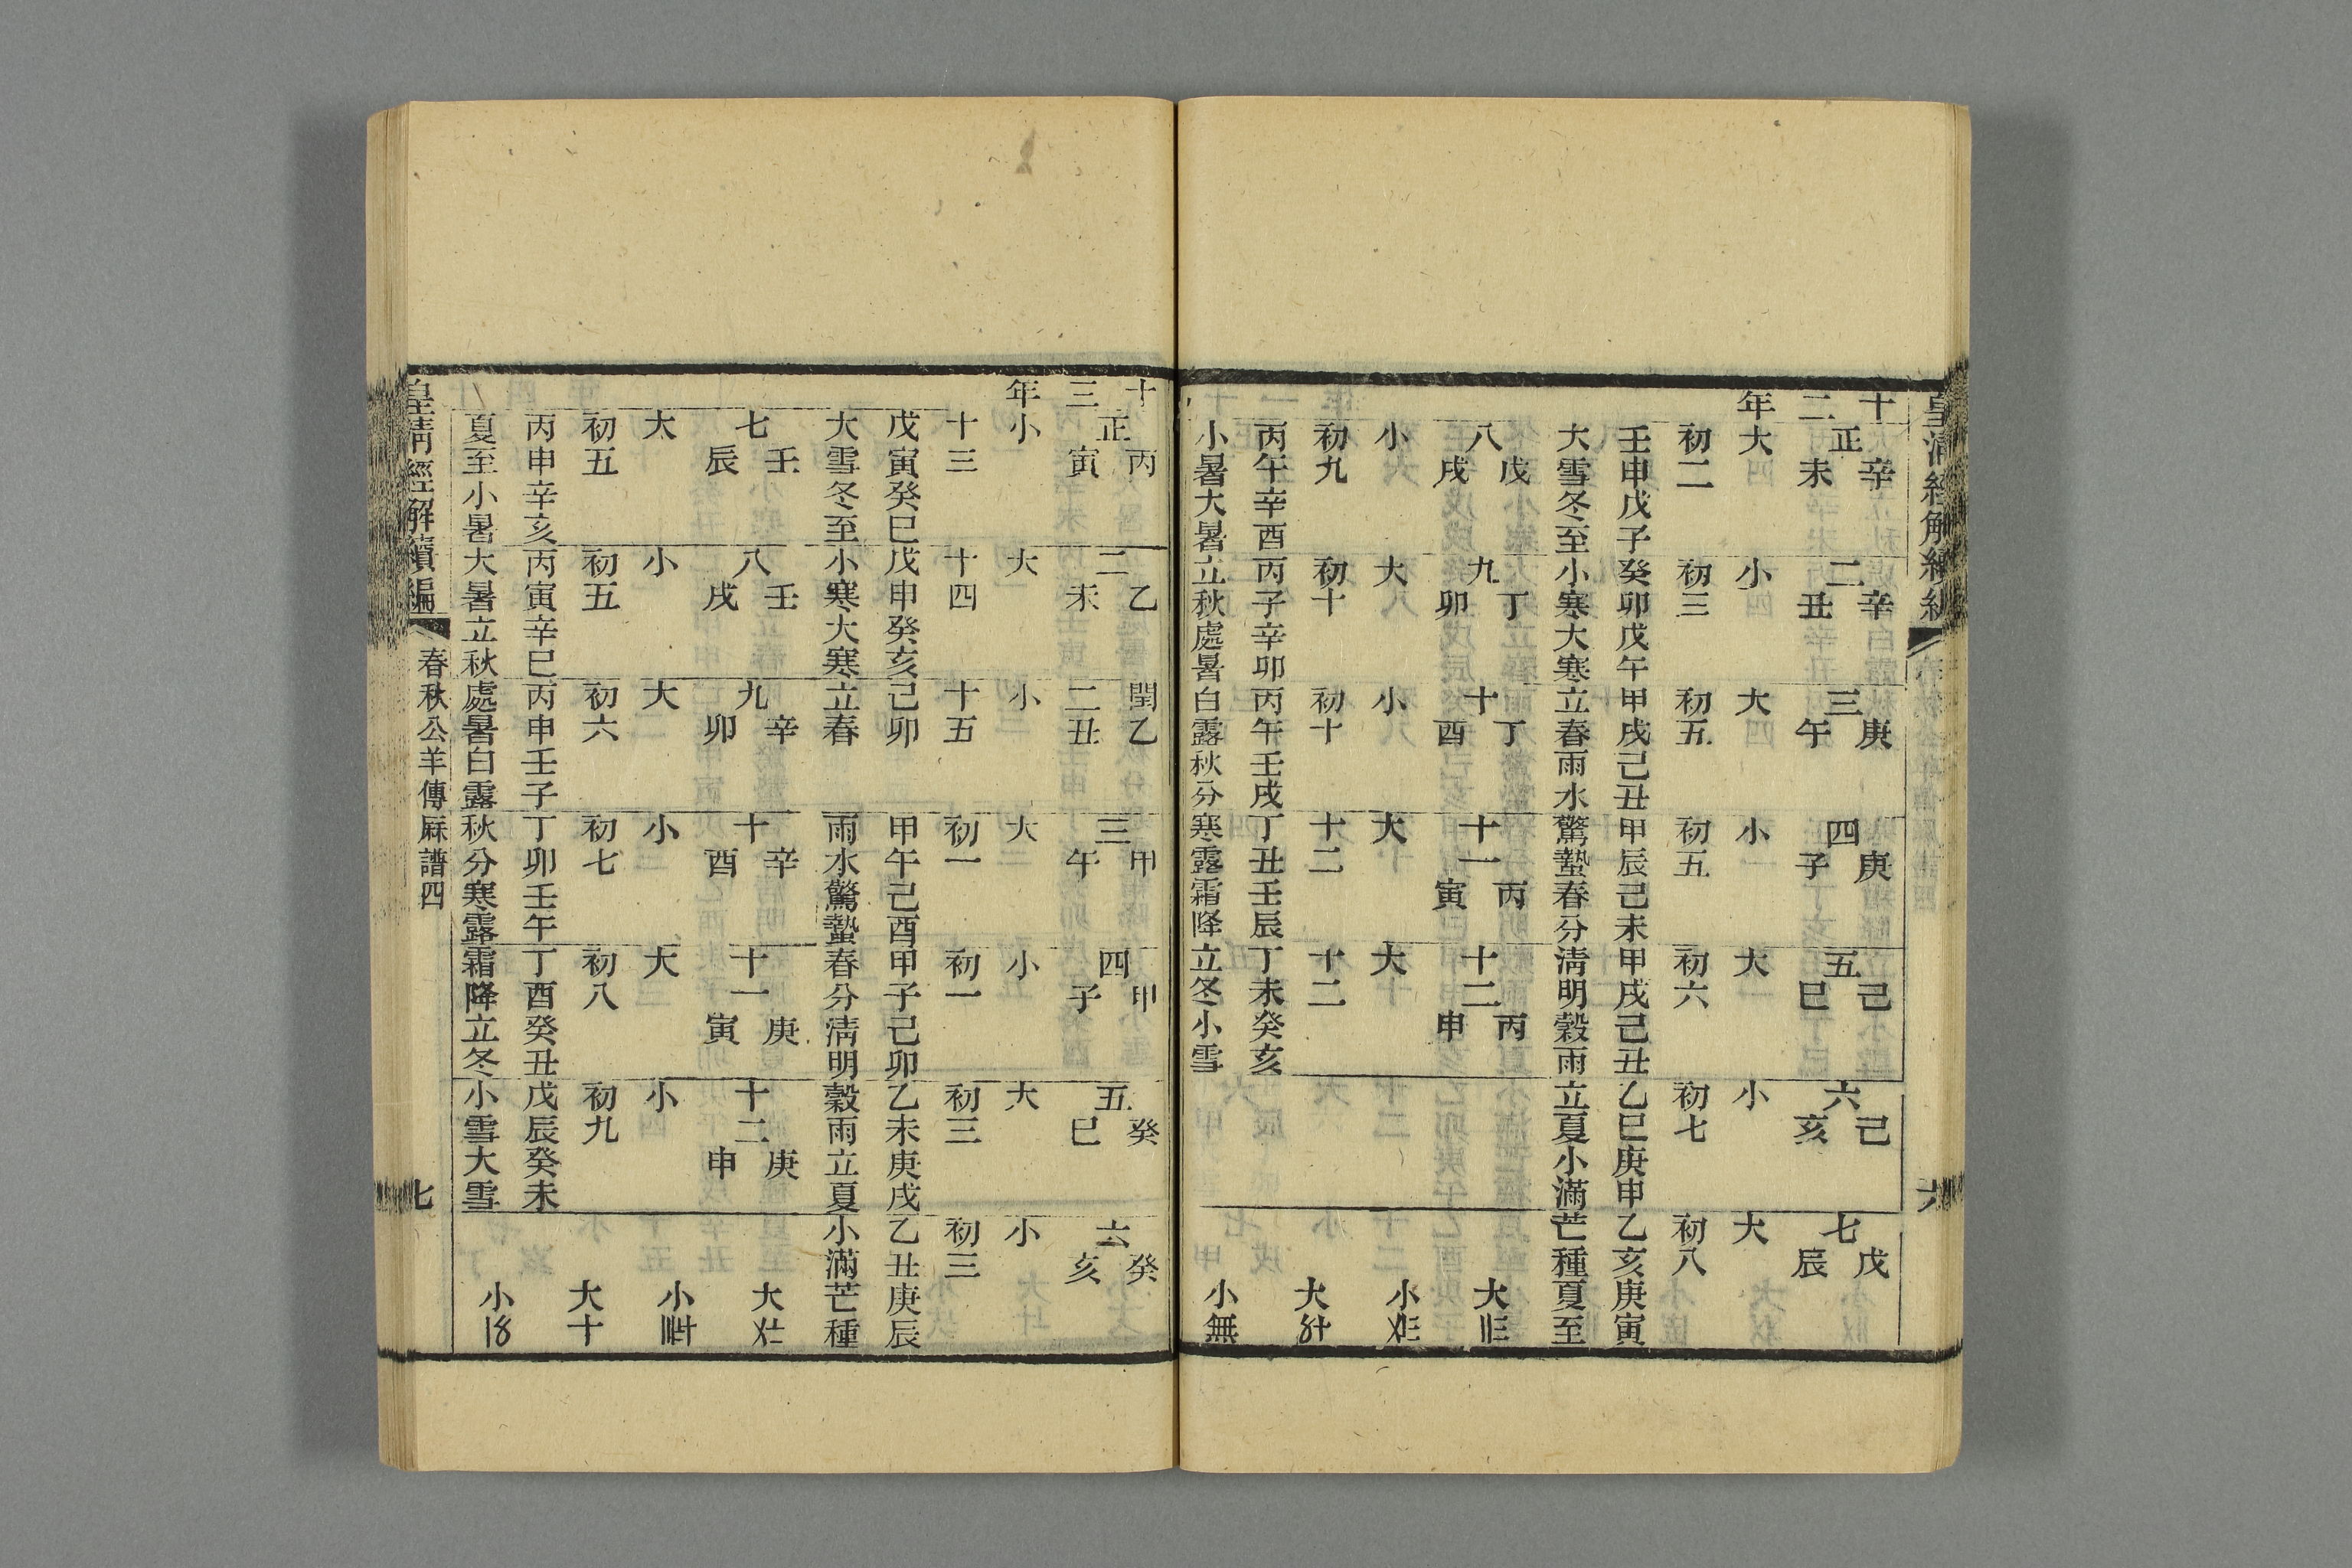 皇清經解續編
六
十二年
正 二 三 四 五 六 七
辛未 辛丑 庚午 庚子 己巳 己亥 戊辰
大 小 大 小 大 小 大
初二 初三 初五 初五 初六 初七 初八
壬申戊子 癸卯戊午 甲戌己丑 甲辰己未 甲戌己丑 乙巳庚申 乙亥庚寅
大雪冬至 小寒大寒 立春雨水 驚蟄春分 淸明穀雨 立夏小滿 芒種夏至
八 九 十 十一 十二
戊戌 丁卯 丁酉 丙寅 丙申
小 大 小 大 大
初九 初十 初十 十二 十二
丙午辛酉 丙子辛卯 丙午壬戌 丁丑壬辰 丁未癸亥
小暑大暑 立秋處暑 白露秋分 寒露霜降 立冬小雪
大
小
大
小無
十三年
正 二 閏二 三 四 五 六
丙寅 乙未 乙丑 甲午 甲子 癸巳 癸亥
小 大 小 大 小 大 小
十三 十四 十五 初一 初一 初三 初三
戊寅癸巳 戊申癸亥 己卯 甲午己酉 甲子己卯 乙未庚戌 乙丑庚辰
大雪冬至 小寒大寒 立春 雨水驚蟄 春分淸明 穀雨立夏 小滿芒種
七 八 九 十 十一 十二
壬辰 壬戌 辛卯 辛酉 庚寅 庚申
大 小 大 小 大 小
初五 初五 初六 初七 初八 初九
丙申辛亥 丙寅辛巳 丙申壬子 丁卯壬午 丁酉癸丑 戊辰癸未
夏至小暑 大暑立秋 處暑白露 秋分寒露 霜降立冬 小雪大雪
大
小
大十
小
皇清經解續編
春秋公羊傳厤譜四
七